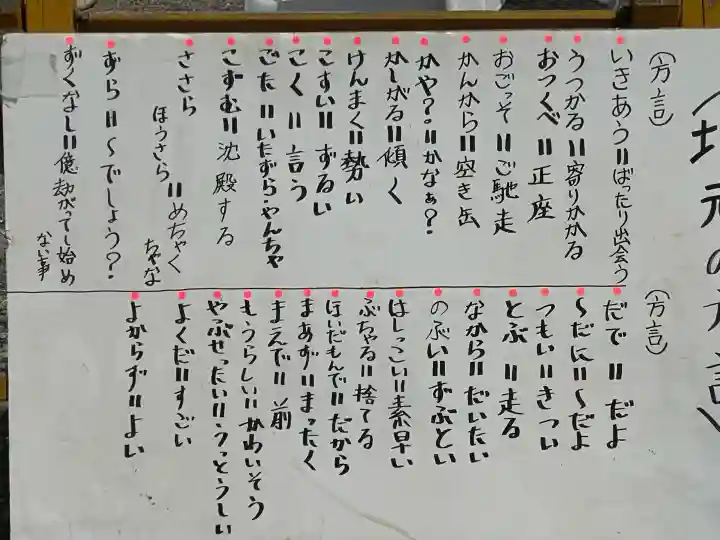 (地元の方言)
(方言)
いきあう=ばったり出会う
うつかる=寄りかかる
おつくべ=正座
おごっそ=ご馳走
かんから=空き缶
かや?=かなぁ?
かしがる=傾く
けんまく=勢い
こすい=ずるい
こく=言う
ごた=いたずら・やんちゃ
こずむ=沈殿する
ささら
ほうさら=めちゃくちゃな
ずら=〜でしょう?
ずくなし=億劫がってし始め
ない事
(方言)
だで=だよ
〜だに=〜だよ
つもい=きつい
とぶ=走る
なから=だいたい
のぶい=ずぶとい
はしっこい=素早い
ぶちゃる=捨てる
ほいだもんで=だから
まあず=まったく
まえで=前
もうらしい=かわいそう
やぶせったい=うっとうしい
よくだ=すごい
よからず=よい